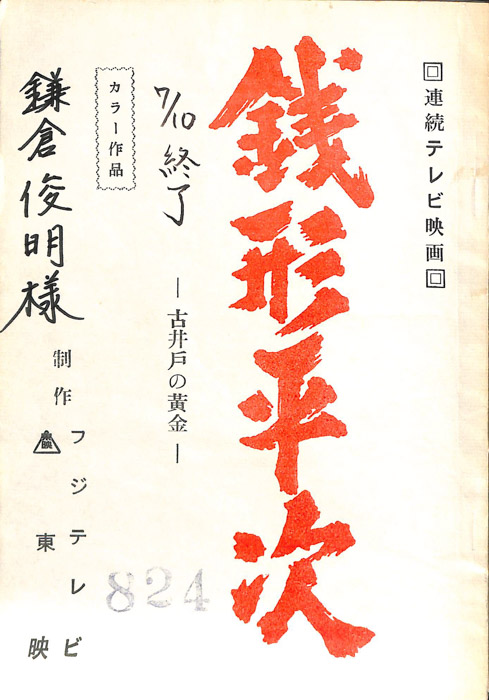 回連続テレビ映画回
銭形平次
7/10 終了
―古井戸の黄金―
カラー作品
鎌倉俊明様
制作
フジテレビ
東映
824